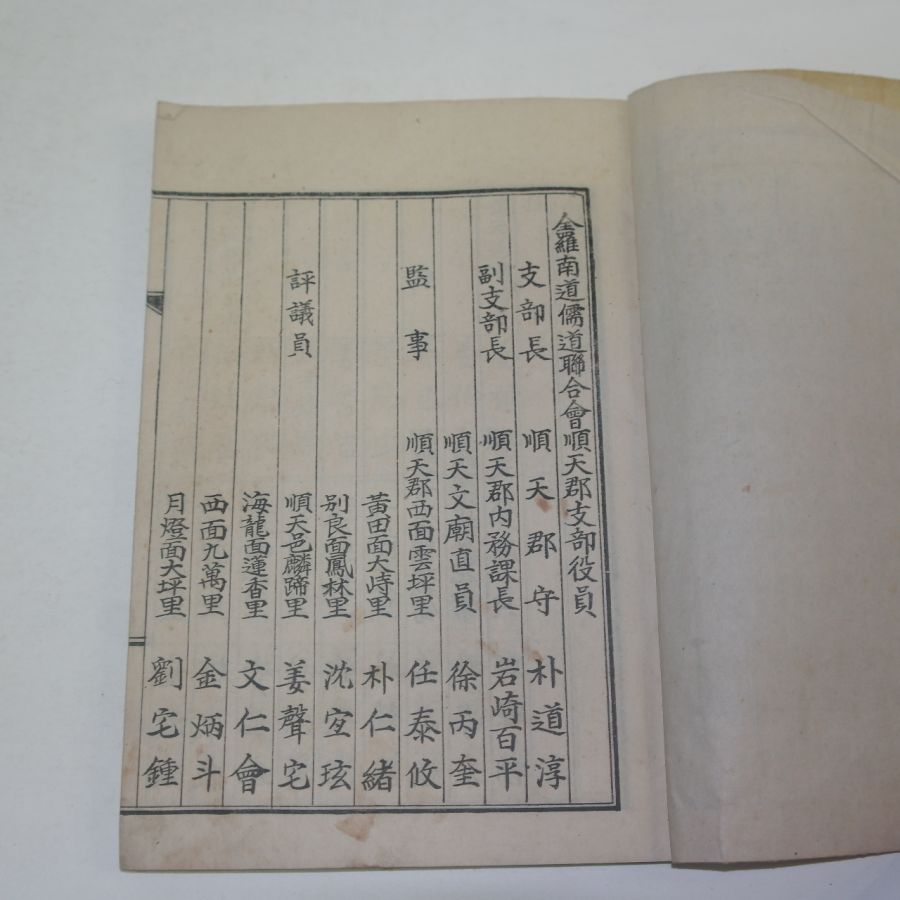 全羅南道儒道聯合會順天郡支部役員
支部長 順天郡守 朴道淳
副支部長 順天郡内務課長 岩崎百平
順天文廟直員 徐丙奎
監事 順天郡西面雲坪里 任泰攸
黃田面大峙里 朴仁緒
別良面鳳林里 沈宜玹
評議員 順天邑麟蹄里 姜聲宅
海龍面蓮香里 文仁會
西面九萬里 金炳斗
月燈面大坪里 劉宅鍾